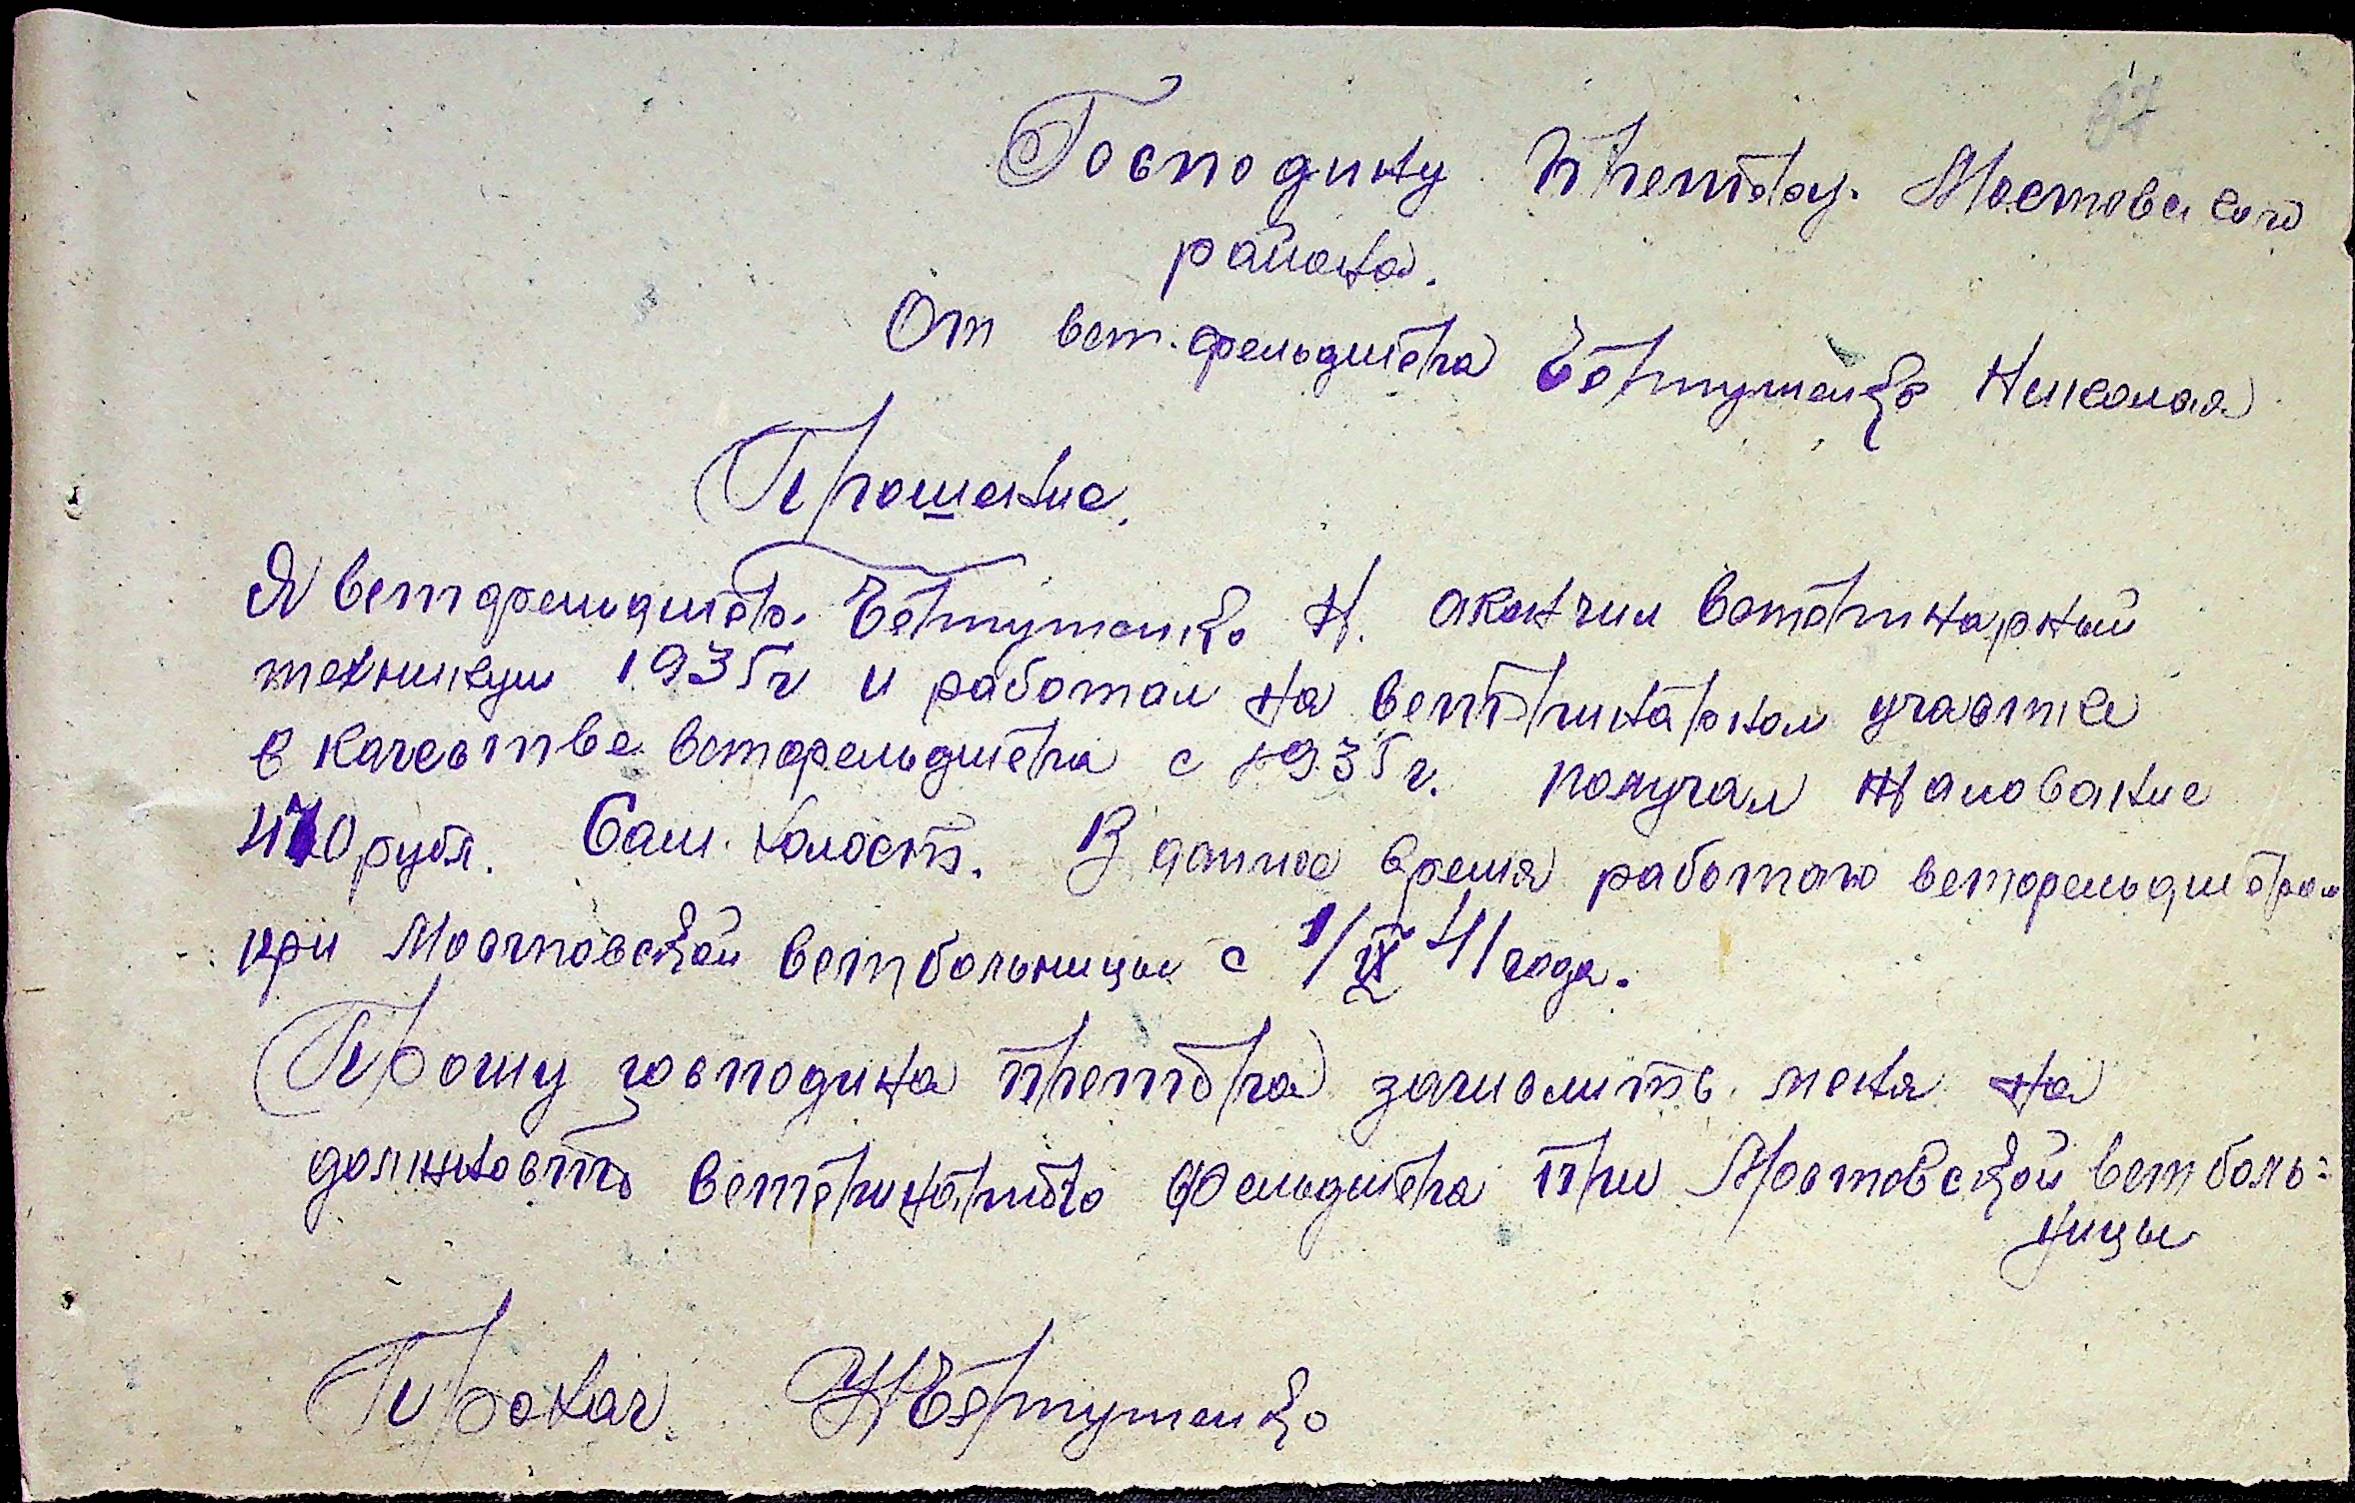 87
Господину Претору. Мостовского
района.
От вет. фельдшера Бертушенко Николая
Прошение.
Я ветфельдшер. Бертушенко Н. окончил ветеринарный
техникум 1935 г и работал на ветеринарном участке
в качестве ветфельдшера с 1935 г. получал жалование
410 рубл. Сам. холост. В данное время работаю ветфельдшером
при Мостовской ветбольницы с 1/IX 41 года.
Прошу господина претора зачислить меня на
должность ветеринарного фельдшера при Мостовской ветболь=
ницы
Прохач НБертушенко